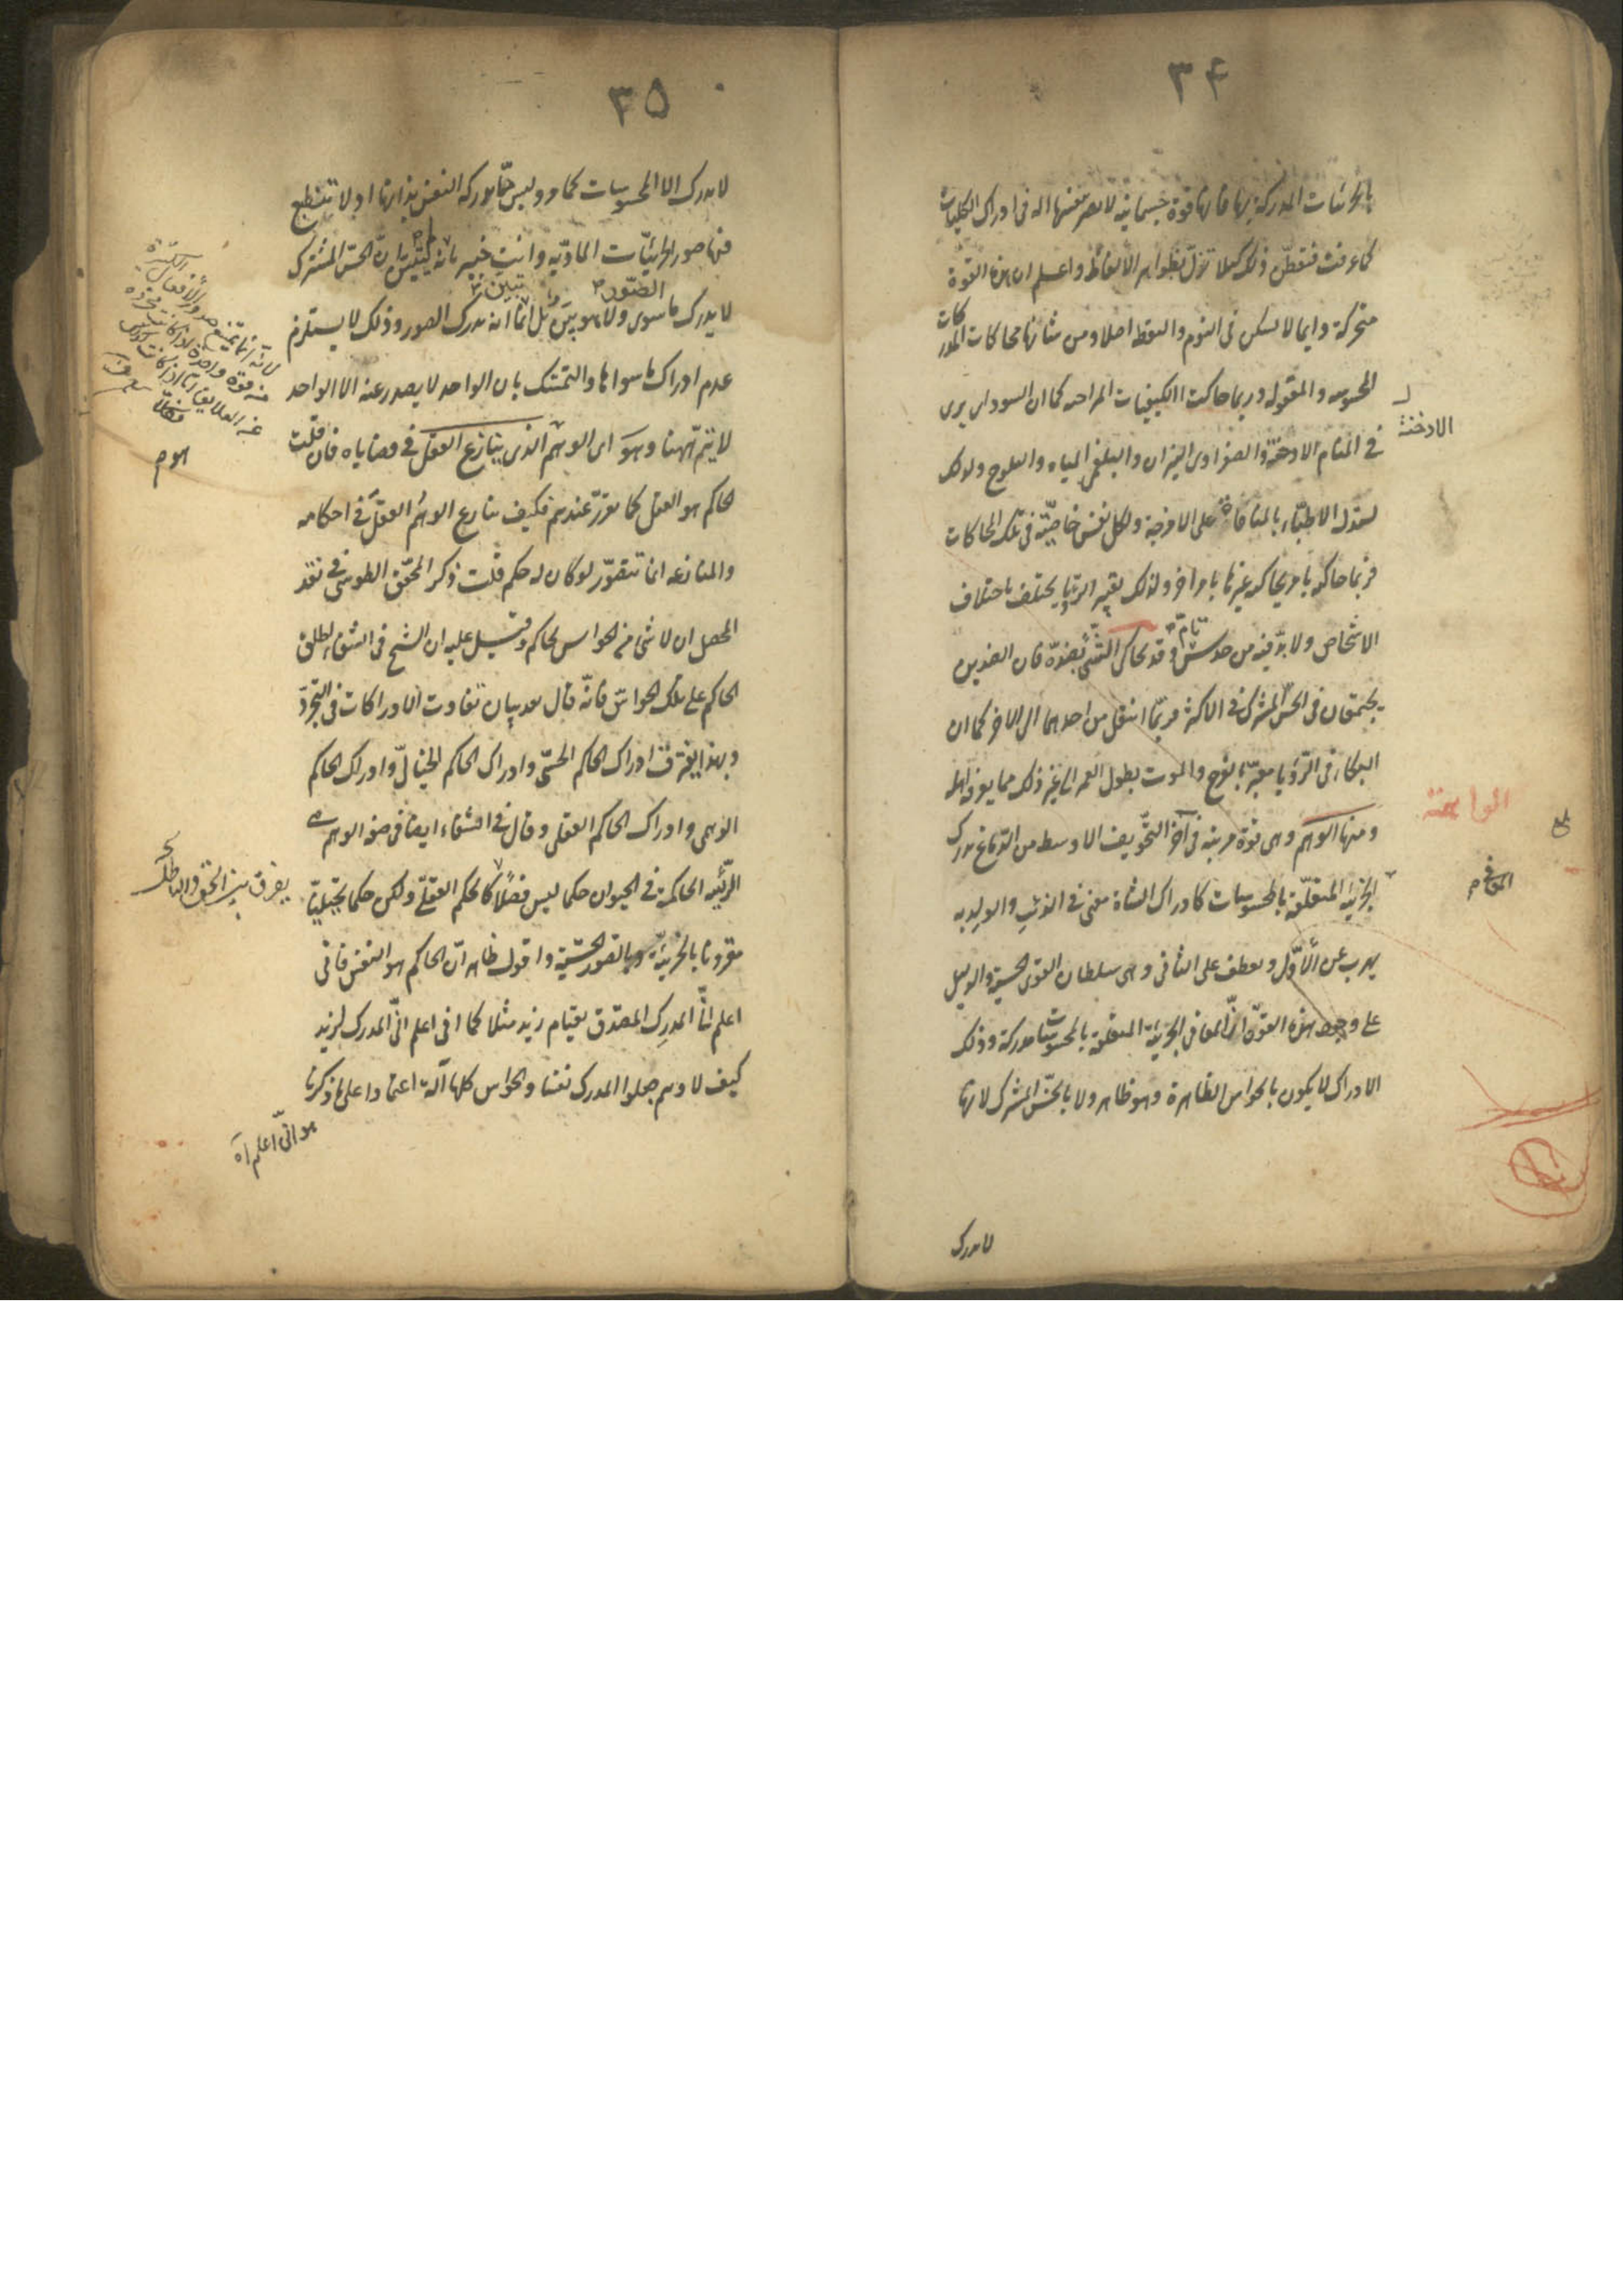 ٣٤
بالجزئيات المدركة بها فانها قوة جسمانية لا تصير بنفسها آلة فى ادراك الكليات
كما عرفت فتفطّن ذلك كيلا تزلّ بظواهر الألفاظ واعلم ان هذه القوة
متحركة دايما لا تسكن فى النوم واليقظة اصلا ومن شانها محاكات المدركات
المحسوسة والمعقولة وربما حاكت الكيفيات المزاجية كما ان السوداوى يرى
فى المنام الادخنة والصفراوى النيران والبلغمى المياه والثلوج ولذلك
الادخنة
يستدل الاطبّاء بالمنامات على الامزجة ولكل نفس خاصّيّة فى تلك المحاكات
فربما حاكه بامر يحاكيه غيرها بامر اخر ولذلك تعبير الرؤيا يختلف باختلاف
الاشخاص ولا بدّ فيه من حدس تامّ وقد يحاكى الشئ بضدّه فان الضدين
يجتمعان فى الحسّ المشترك فى الاكثر فربّما انتقل من احدهما الى الاخر كما ان
البكاء فى الرؤيا معبّر بالفرح والموت بطول العمر الى غير ذلك مما يعرفه اهله
ومنها الوهم وهى قوة مرتبة فى آخر التّجويف الاوسط من الدّماغ تدرك
المعانى م
الجزئية المتعلّقة بالمحسوسات كادراك الشاة معنى فى الذئب والولد به
يهرب عن الأوّل ويعطف على الثانى وهى سلطان القوى الحسّيّة والدليل
على وجود هذه القوّة انّ المعانى الجزئيّة المتعلقة بالمحسوسات مدركة وذلك
الادراك لا يكون بالحواس الظاهرة وهو ظاهر ولا بالحسّ المشترك لانها
لا تدرك
٣٥
لا تدرك الا المحسوسات كما مر وليس ممّا تدركه النفس بذاتها اذ لا تنطبع
فيها صور الجزئيّات الماديّة وانت خبير بانه لم يتبيّن انّ الحسّ المشترك
لا يدرك ما سوى الصّور ولا هو بيّن بل انّما تبيّن انه يدرك الصور وذلك لا يستلزم
عدم ادراك ما سواها والتمسّك بان الواحد لا يصدر عنه الا الواحد
لا يتمّ ههنا وهو اى الوهم الذى ينازع العقل فى قضاياه فان قلت
الحاكم هو العقل كما تقرّر عندهم فكيف ينازع الوهم العقل فى احكامه
والمنازعة انما تتصوّر لو كان له حكم قلت ذكر المحقّق الطوسى فى نقد
المحصل ان لا شئ من الحواس بحاكم وقيل عليه ان الشيخ فى الشفاء اطلق
الحاكم على تلك الحواسّ فانّه قال بعد بيان تفاوت الادراكات فى التجرّد
وبهذا يفترق ادراك الحاكم الحسّى وادراك الحاكم الخيالىّ وادراك الحاكم
الوهمى وادراك الحاكم العقلى وقال فى الشفاء ايضا فى صفة الوهم هى
الرّئيسة الحاكمة فى الحيوان حكما ليس فصلًا كالحكم العقلىّ ولكن حكما تخيّليّا
يفرق بين الحق والباطل
مقرونا بالجزئيّة وبالصّورة الحسّيّة واقول ظاهر انّ الحاكم هو النفس فانى
اعلم انّا المدرك المصدّق بقيام زيد مثلا كما انى اعلم انّى المدرك لزيد
كيف لا وهم جعلوا المدرك نفسا والحواس كلها آلة اعتمادا على ما ذكرنا
هو انّى اعلم آه
لانّه انّما يمتنع صدور الأفعال الكثيرة
منه قوة واحدة اذا كانت مجردة
عن العلايق